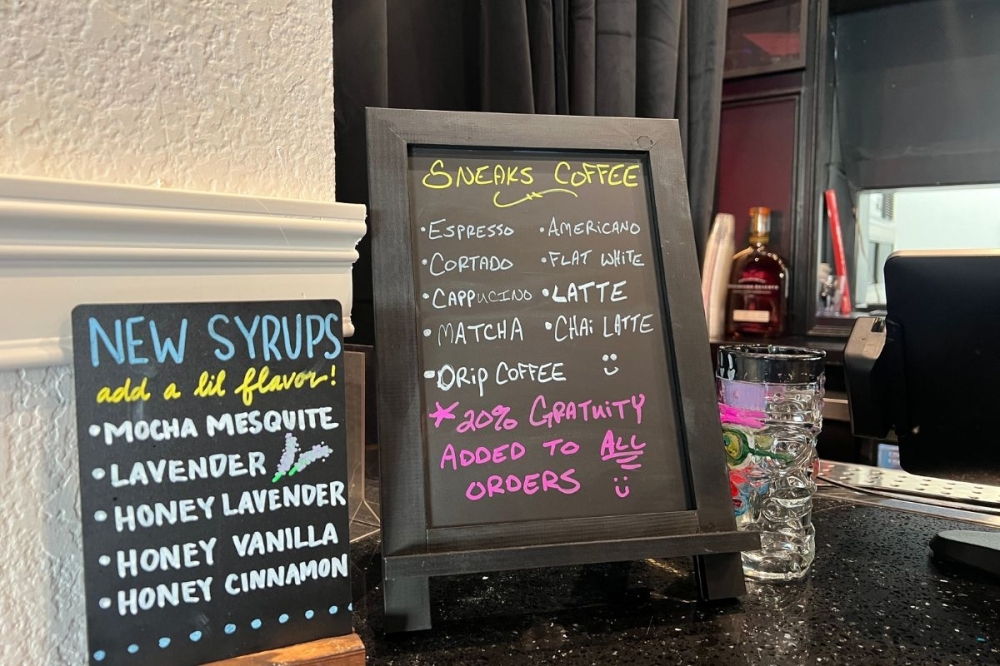 NEW SYRUPS
add a lil flavor!
•MOCHA MESQUITE
•LAVENDER
•HONEY LAVENDER
•HONEY VANILLA
•HONEY CINNAMON
SNEAKS COFFEE
•ESPRESSO •AMERICANO
•CORTADO •FLAT WHITE
•CAPPUCINO •LATTE
•MATCHA •CHAi LATTE
•DRip COFFEE
*20% GRATUITY
ADDED TO ALL
ORDERS